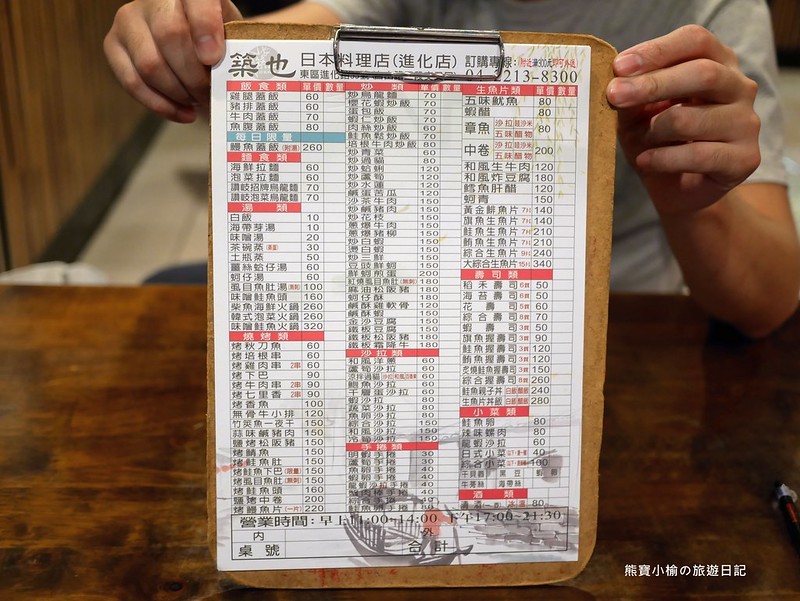 築也 日本料理店(進化店) 訂購專線:
04-2213-8300
飯食類 單價 數量
雞腿蓋飯 60
豬排蓋飯 60
牛肉蓋飯 70
魚腹蓋飯 80
每日限量
鰻魚蓋飯(附湯) 260
麵食類
海鮮拉麵 60
泡菜拉麵 60
讚岐招牌烏龍麵 70
讚岐泡菜烏龍麵 70
湯類
白飯 10
海帶芽湯 10
味噌湯 20
茶碗蒸 30
土瓶蒸 50
薑絲蛤仔湯 60
蚵仔湯 60
虱目魚肚湯 100
味噌鮭魚頭 160
柴魚海鮮火鍋 260
韓式泡菜火鍋 260
味噌鮭魚火鍋 320
燒烤類
烤秋刀魚 60
烤培根串 60
烤雞肉串 2串 60
烤下巴 90
烤牛肉串 2串 90
烤七里香 2串 90
烤香魚 100
無骨牛小排 120
竹筴魚一夜干 150
蒜味鹹豬肉 150
鹽烤松阪豬 150
烤鯖魚 150
烤鮭魚肚 150
烤鮭魚下巴(限量) 150
烤虱目魚肚(無刺) 150
烤鮭魚頭 160
鹽烤中卷 200
烤鰻魚片(一片) 220
炒類 單價 數量
炒烏龍麵 70
櫻花蝦炒飯 70
蛋包飯 70
蝦仁炒飯 70
肉絲炒飯 70
鮭魚鬆炒飯 70
培根牛肉炒飯 80
炒青菜 60
炒過貓 80
炒蛤蜊 120
炒蘆筍 120
炒水蓮 120
鹹蛋苦瓜 120
沙茶牛肉 150
炒鹹豬肉 150
炒花枝 150
蔥爆牛肉 150
蔥爆豬柳 150
炒白蝦 150
燙白蝦 150
炒三鮮 150
豆豉鮮蚵 150
鮮蚵煎蛋 200
紅燒虱目魚肚(無刺) 180
麻油松阪豬 180
蚵仔酥 180
鹹酥雞軟骨 120
鹹酥蝦 150
金沙豆腐 150
鐵板豆腐 150
鐵板松阪豬 180
鐵板霜降牛 180
沙拉類
和風洋蔥 60
蘆筍沙拉 60
涼拌過貓 60
鮑魚沙拉 60
千層蛋沙拉 60
蝦沙拉 60
蔬菜沙拉 80
魚卵沙拉 80
綜合沙拉 150
和風沙拉 150
冷筍沙拉 150
手捲類
明蝦手捲 30
蘆筍手捲 30
魚卵手捲 40
鮭魚手捲 40
生魚片類 單價 數量
五味魷魚 80
蝦醋 80
章魚 沙拉 哇沙米 五味 醋物 80
中卷 沙拉 哇沙米 五味 醋物 200
和風生牛肉 120
和風炸豆腐 180
鱈魚肝醋 120
蚵青 150
黃金鯡魚片 7片 140
旗魚生魚片 7片 140
鮭魚生魚片 7片 210
鮪魚生魚片 7片 210
綜合生魚片 9片 240
大綜合生魚片 15片 340
壽司類
稻禾壽司 6貫 50
海苔壽司 50
花壽司 60
綜合壽司 70
蝦壽司 50
旗魚握壽司 3貫 120
鮭魚握壽司 3貫 120
鮪魚握壽司 3貫 120
炙燒鮭魚握壽司 150
綜合握壽司 260
鮭魚親子丼 240
生魚片丼飯 280
小菜類
鮭魚卵 80
辣味螺肉 80
龍蝦沙拉 60
日式小菜 40
綜合小菜 100
干貝唇 黑豆
牛蒡絲 海帶絲
酒類
80
營業時間:早上11:00~14:00 下午17:00~21:30
內 外
桌號 合計
熊寶小榆の旅遊日記